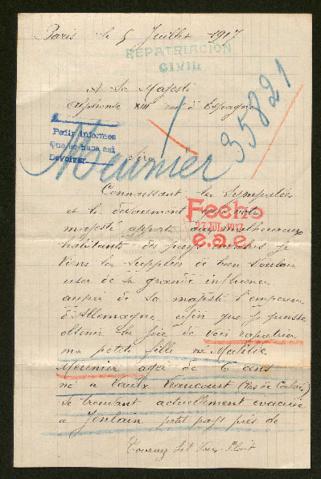 Paris le 5 Juillet 1917
REPATRIACION
CIVIL
A Sa Majesté
Alphonse XIII roi d'Espagne
35821
Pedir informes
Que se hace así
Devolver
Sire
Meunier
Connaissant les sympathies
et le dévouement que votre
majesté apporte aux malheureux
habitants des pays envahis je
viens la supplier de bien vouloir
user de sa grande influence
auprès de sa majesté l'empereur
d'Allemagne afin que je puisse
obtenir la joie de voir rapatrier
ma petite fille née Matilde
Meunier agée de 6 ans
né a Vaulx Vraucourt (Pas de Calais)
se trouvant actuellement evacuée
a Jenlain petit pays près de
Fecho
1917
e.a.e.